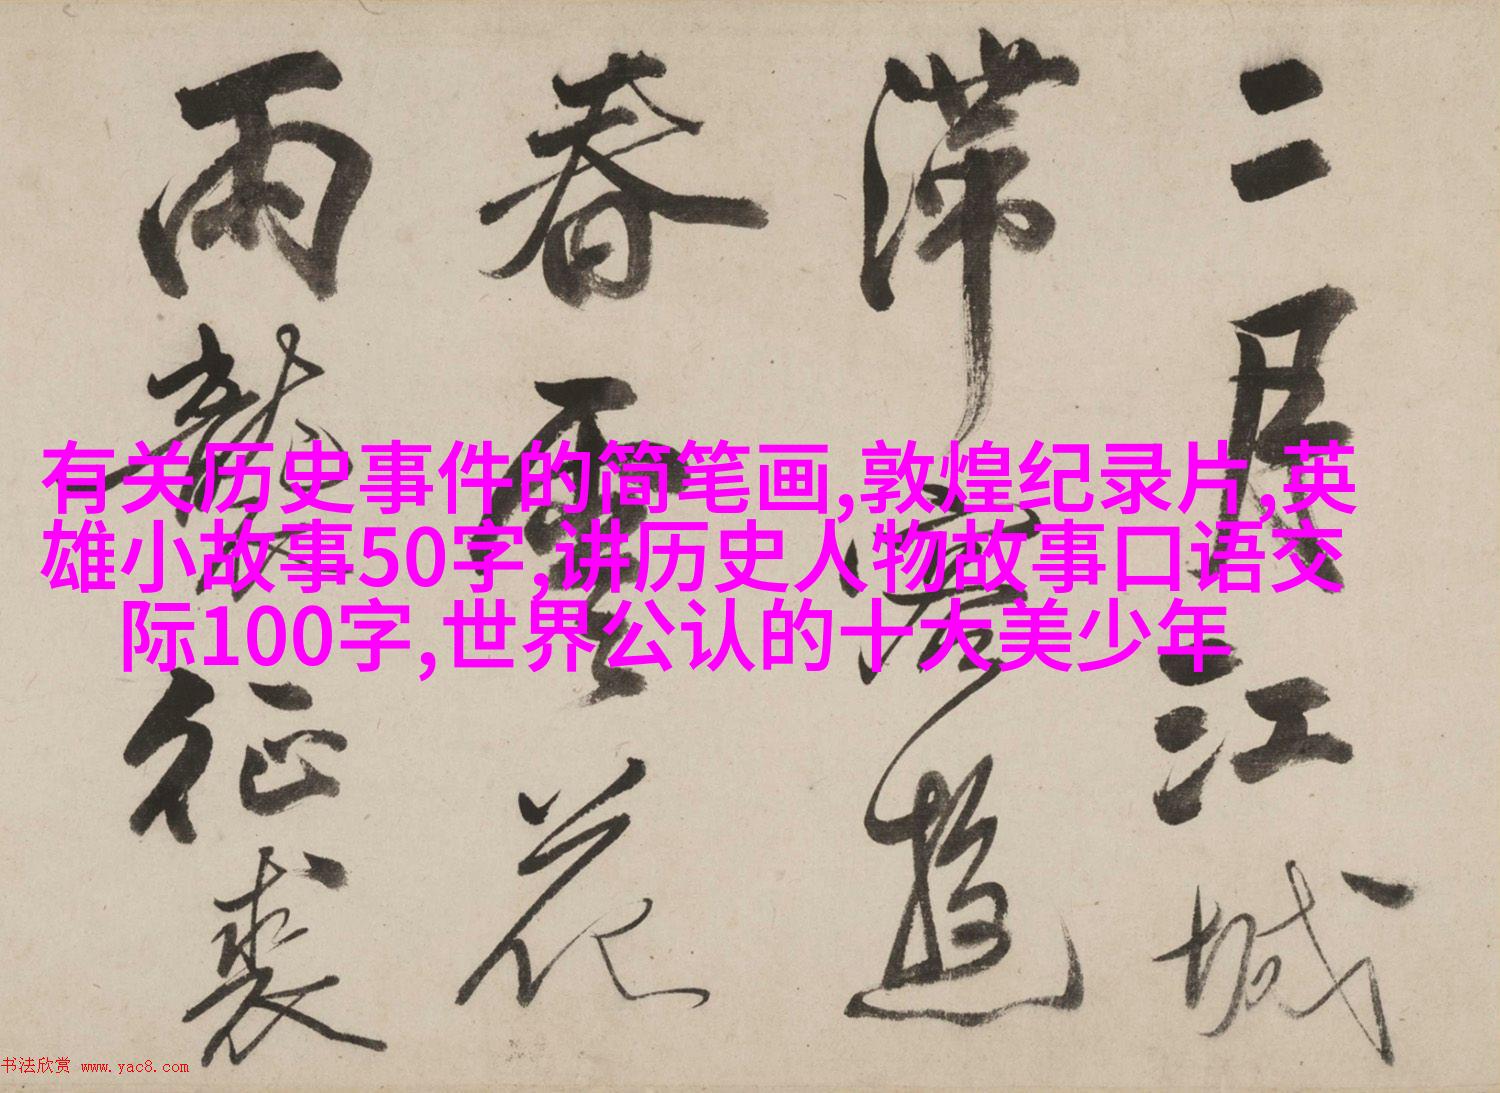 二月江城
滞客游
春雲花
雨裛征裘
有关历史事件的简笔画,敦煌纪录片,英
雄小故事50字,讲历史人物故事口语交
际100字,世界公认的十大美少年
书法欣赏 www.yac8.com